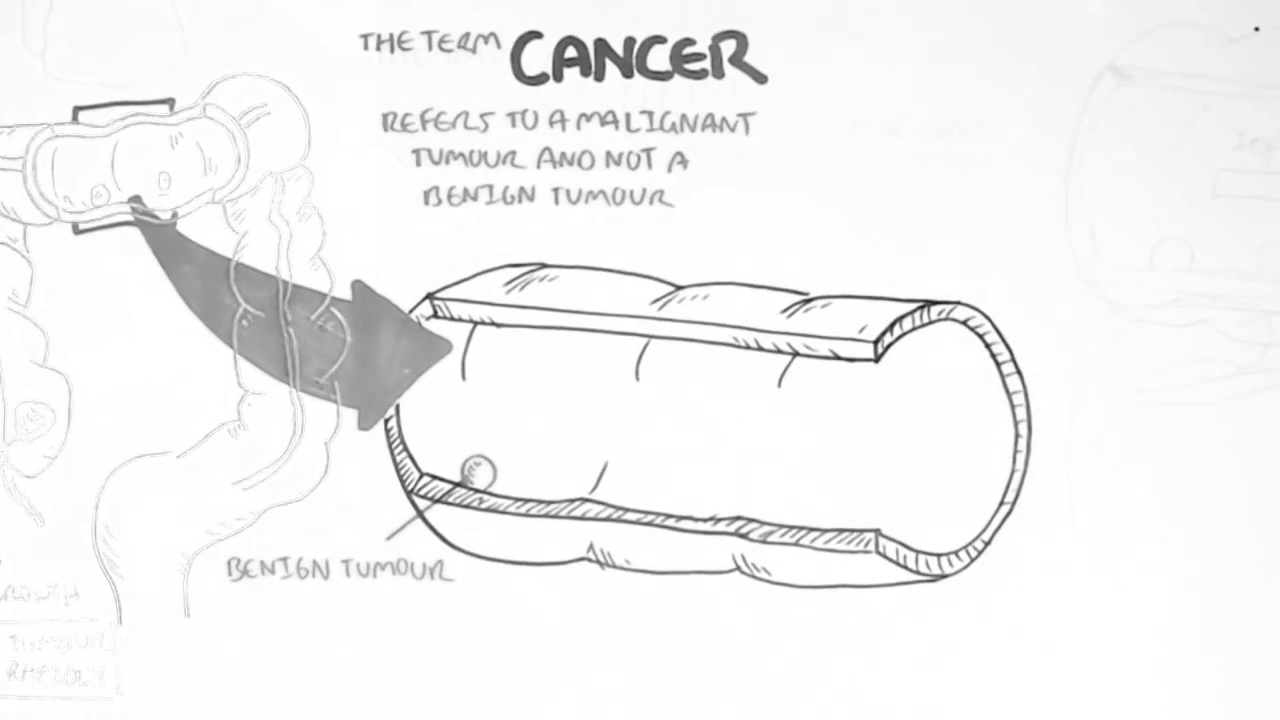 THE TERM CANCER
REFERS TO A MALIGNANT
TUMOUR AND NOT A
BENIGN TUMOUR
BENIGN TUMOUR
TUMOUR
RAPIDLY